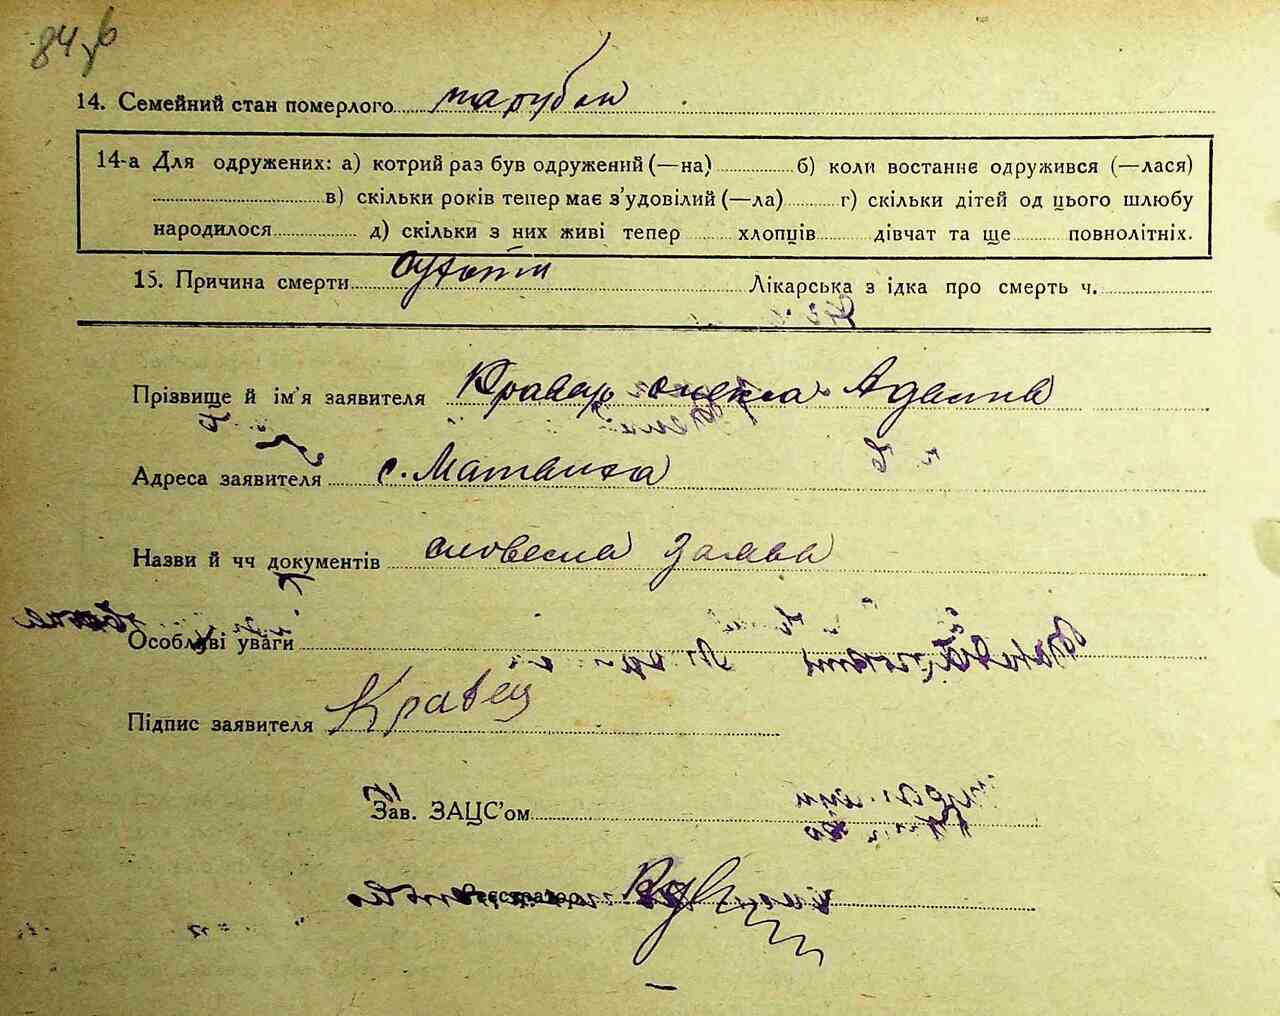 84 зв
14. Семейний стан померлого парубок
14-а Для одружених: а) котрий раз був одружений (—на) б) коли востаннє одружився (—лася)
в) скільки років тепер має з'удовілий (—ла) г) скільки дітей од цього шлюбу
народилося д) скільки з них живі тепер хлопців дівчат та ще повнолітніх.
15. Причина смерти Сухоти Лікарська з ідка про смерть ч.
Прізвище й ім'я заявителя Кравец Олекса
Адреса заявителя с. Матвиха
Назви й чч документів словесна заява
Особлуві уваги
Підпис заявителя Кравец
Зав. ЗАЦС'ом
Реєстратор